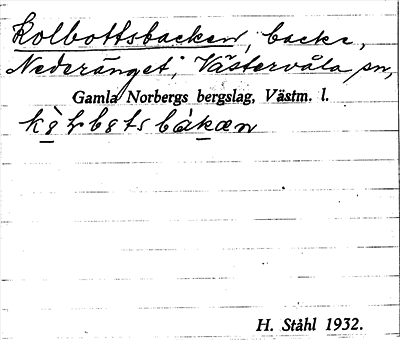 Kolbottsbacken, backe,
Nederänget, Västervåla sn,
Gamla Norbergs bergslag, Västm. l.
H. Ståhl 1932.